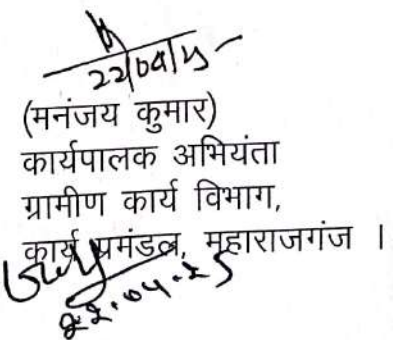 22/04/25
(मनंजय कुमार)
कार्यपालक अभियंता
ग्रामीण कार्य विभाग,
कार्य प्रमंडल, महाराजगंज ।
22.04.25